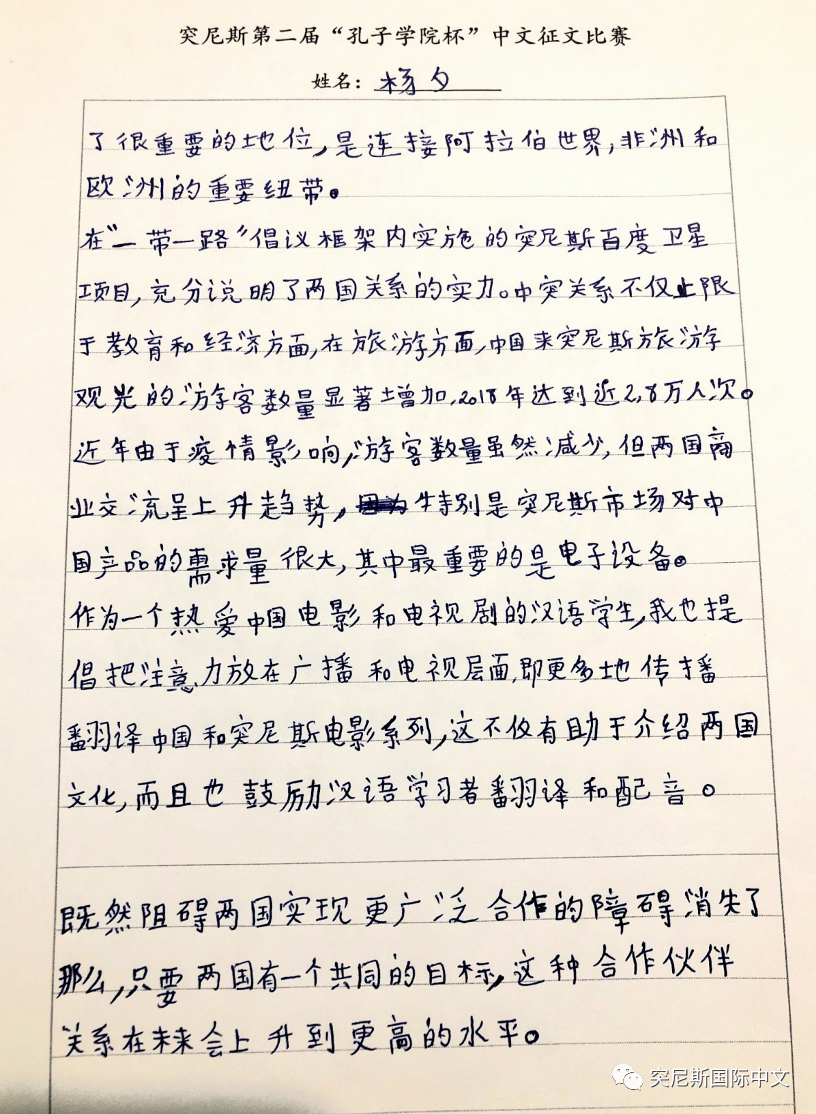 突尼斯第二届“孔子学院杯”中文征文比赛
姓名：杨夕
了很重要的地位,是连接阿拉伯世界,非洲和
欧洲的重要纽带。
在“一带一路”倡议框架内实施的突尼斯百度卫星
项目,充分说明了两国关系的实力。中突关系不仅止限
于教育和经济方面,在旅游方面,中国来突尼斯旅游
观光的游客数量显著增加,2018年达到近2,8万人次。
近年由于疫情影响,游客数量虽然减少,但两国商
业交流呈上升趋势,特别是突尼斯市场对中
国产品的需求量很大,其中最重要的是电子设备。
作为一个热爱中国电影和电视剧的汉语学生,我也提
倡把注意力放在广播和电视层面,即更多地传播
翻译中国和突尼斯电影系列,这不仅有助于介绍两国
文化,而且也鼓励汉语学习者翻译和配音。
既然阻碍两国实现更广泛合作的障碍消失了
那么,只要两国有一个共同的目标,这种合作伙伴
关系在未来会上升到更高的水平。
突尼斯国际中文